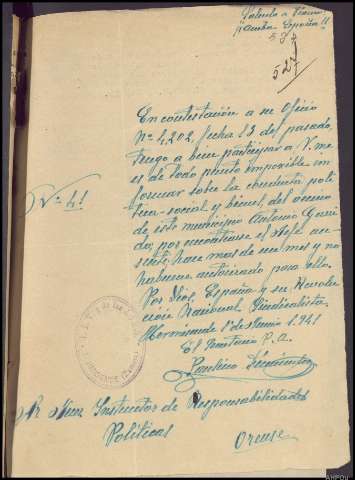 Saludo a Franco
¡¡Arriba España!!
527
En contestación a su Oficio
Nº 4,202, fecha 13 del pasado,
tengo a bien participar a V. me
es de todo punto imposible in
formar sobre la conducta poli
tica-social y bienes, del vecino
de este municipio Antonio Garri
do, por encontrarse el Jefe au
sente, hace mas de un mes y no
haberme autorizado para ello.
Por Dios, España y su Revolu
ción Nacional Sindicalista.
1º de Junio 1.941
El P.A.
Nº 41
Sr Juez Instructor de Responsabilidades
Políticas
Orense